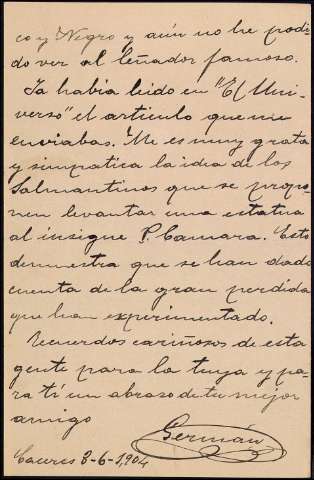 co y Negro y aún no he podi
do ver al leñador famoso.
Ya habia leido en "El Uni-
verso" el articulo que me
enviabas. Me es muy grata
y simpatica la idea de los
Salmantinos que se propo-
nen levantar una estatua
al insigne P. Camara. Esto
demuestra que se han dado
cuenta de la gran perdida
que han experimentado.
Recuerdos cariñosos de esta
gente para la tuya y pa-
ra tí un abrazo de tu mejor
amigo
Germán
Caceres 3-6-1,904